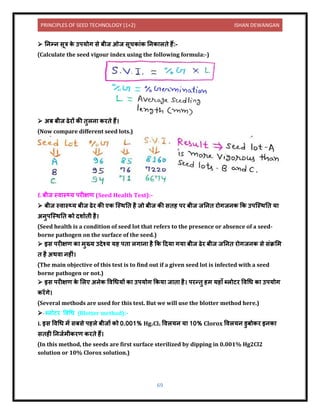 PRINCIPLES OF SEED TECHNOLOGY (1+2) ISHAN DEWANGAN
➢ निम्न सूत्र के उपयोग से बीज ओज सूचकांक निकालते हैं:-
(Calculate the seed vigour index using the following formula:-)
S.V.I. = %G × L
%G = %Germination
L = Average Seedling
length (mm)
➢ अब बीज ढेरों की तुलना करते हैं।
(Now compare different seed lots.)
Seed Lot %G L S.V.I.
A 96 85 8160
B 95 76 7220
C 94 71 6674
Result ⇒ Seed lot-A
is more vigorous than
Seed lots B and C.
f. बीज स्वास्थ्य परीक्षण (Seed Health Test):-
➢ बीज स्वास्थ्य बीज ढेर की एक स्थिति है जो बीज की सतह पर बीज जनित रोगजनक कि उपस्थिति या
अनुपस्थिति को दर्शाती है।
(Seed health is a condition of seed lot that refers to the presence or absence of a seed-
borne pathogen on the surface of the seed.)
➢ इस परीक्षण का मुख्य उद्देश्य यह पता लगाना है कि दिया गया बीज ढेर बीज जनित रोगजनक से संक्रमि
त है अथवा नहीं।
(The main objective of this test is to find out if a given seed lot is infected with a seed
borne pathogen or not.)
➢ इस परीक्षण के लिए अनेक विधियों का उपयोग किया जाता है। परन्तु हम यहाँ ब्लोटर विधि का उपयोग
करेंगे।
(Several methods are used for this test. But we will use the blotter method here.)
➢ ब्लोटर विधि (Blotter method):-
i. इस विधि में सबसे पहले बीजों को 0.001% Hg₂Cl₂ विलयन या 10% Clorox विलयन डुबोकर इनका
सतही निर्जर्मीकरण करते हैं।
(In this method, the seeds are first surface sterilized by dipping in 0.001% Hg2Cl2
solution or 10% Clorox solution.)
69